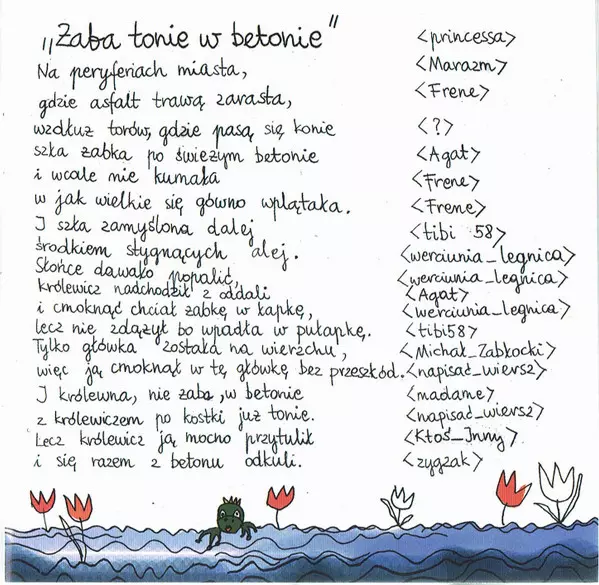 „Żaba tonie w betonie” <princessa>
Na peryferiach miasta, <Marazm>
gdzie asfalt trawą zarasta, <Frene>
wzdłuż torów, gdzie pasą się konie <?>
szła żabka po świeżym betonie <Agat>
i wcale nie kumała <Frene>
w jak wielkie się gówno wplątała. <Frene>
I szła zamyślona dalej <tibi 58>
środkiem stygnących alej. <werciunia_legnica>
Słońce dawało popalić, <werciunia_legnica>
królewicz nadchodził z oddali <Agat>
i cmoknąć chciał żabkę w łapkę, <werciunia_legnica>
lecz nie zdążył bo wpadła w pułapkę. <tibi58>
Tylko główka została na wierzchu, <Michał_Zabłocki>
więc ją cmoknął w tę główkę bez przeszkód. <napisać_wiersz>
I królewna, nie żaba, w betonie <madame>
z królewiczem po kostki już tonie. <napisać_wiersz>
Lecz królewicz ją mocno przytulił <Ktoś_Inny>
i się razem z betonu odkuli. <zygzak>